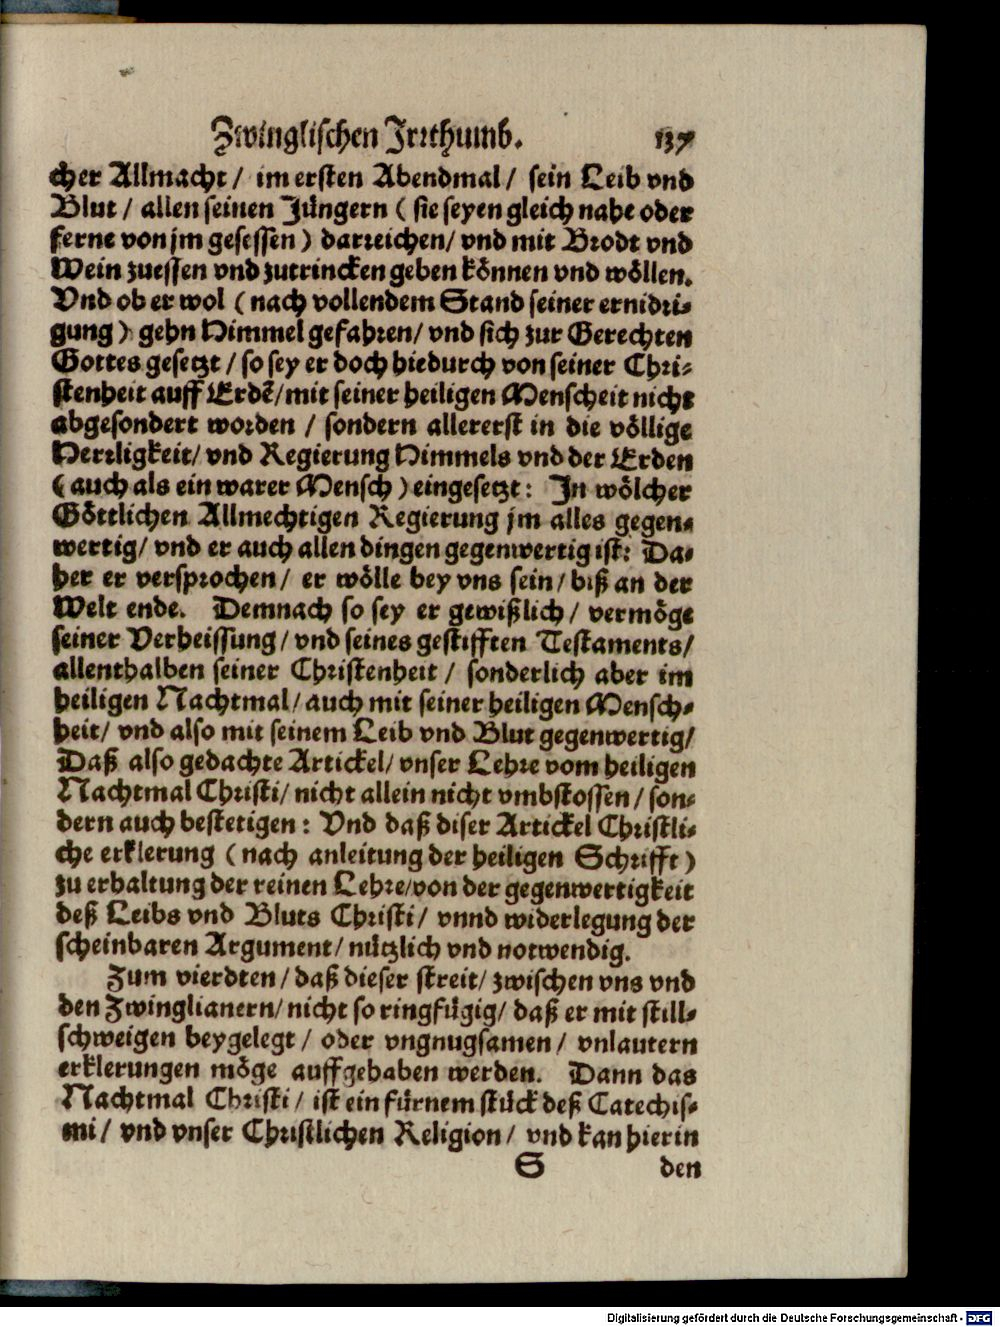 Zwinglischen Irrthumb. 137
cher Allmacht / im ersten Abendmal / sein Leib vnd
Blut / allen seinen Jüngern ( sie seyen gleich nahe oder
ferne von jm gesessen ) darreichen / vnd mit Brodt vnd
Wein zuessen vnd zutrincken geben können vnd wöllen.
Vnd ob er wol ( nach vollendem Stand seiner ernidri-
gung ) gehn Himmel gefahren / vnd sich zur Gerechten
Gottes gesetzt / so sey er doch hiedurch von seiner Chri-
stenheit auff Erdẽ / mit seiner heiligen Menscheit nicht
abgesondert worden / sondern allererst in die völlige
Herrligkeit / vnd Regierung Himmels vnd der Erden
( auch als ein warer Mensch ) eingesetzt: In wölcher
Göttlichen Allmechtigen Regierung jm alles gegen-
wertig / vnd er auch allen dingen gegenwertig ist: Da-
her er versprochen / er wölle bey vns sein / biß an der
Welt ende. Demnach so sey er gewißlich / vermöge
seiner Verheissung / vnd seines gestifften Testaments /
allenthalben seiner Christenheit / sonderlich aber im
heiligen Nachtmal / auch mit seiner heiligen Mensch-
heit / vnd also mit seinem Leib vnd Blut gegenwertig /
Daß also gedachte Artickel / vnser Lehre vom heiligen
Nachtmal Christi / nicht allein nicht vmbstossen / son-
dern auch bestetigen: Vnd daß diser Artickel Christli-
che erklerung ( nach anleitung der heiligen Schrifft )
zu erhaltung der reinen Lehre / von der gegenwertigkeit
deß Leibs vnd Bluts Christi / vnnd widerlegung der
scheinbaren Argument / nützlich vnd notwendig.
Zum vierdten / daß dieser streit / zwischen vns vnd
den Zwinglianern / nicht so ringfügig / daß er mit still-
schweigen beygelegt / oder vngnugsamen / vnlautern
erklerungen möge auffgehaben werden. Dann das
Nachtmal Christi / ist ein fürnem stück deß Catechis-
mi / vnd vnser Christlichen Religion / vnd kan hierin
S den
Digitalisierung gefördert durch die Deutsche Forschungsgemeinschaft - DFG